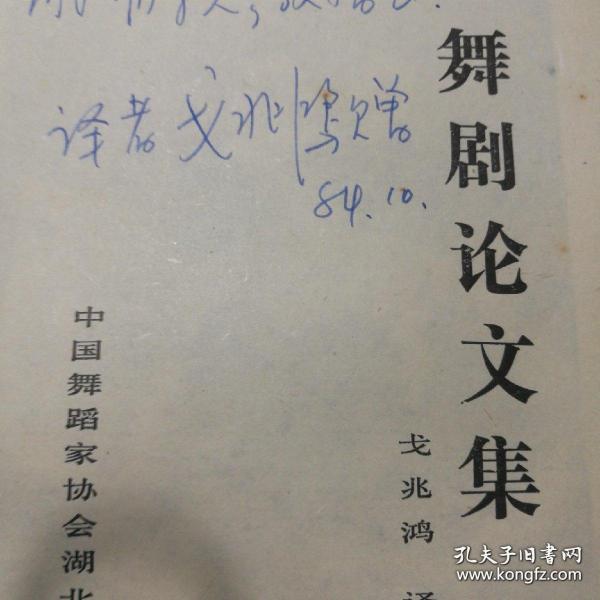 译者 戈兆鸿赠
84.10.
舞剧论文集
戈兆鸿 译
中国舞蹈家协会湖北
孔夫子旧书网
www.kongfz.com